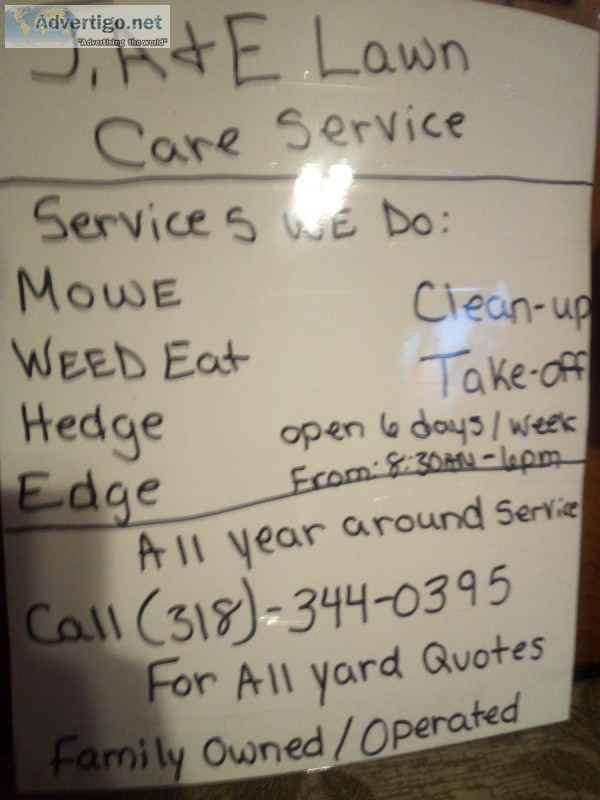 Advertigo.net
"Advertising the world"
J, A & E Lawn
Care Service
Services WE Do:
MOWE
Clean-up
WEED Eat
Take-off
Hedge
open 6 days/week
From: 8:30AM-6pm
Edge
All year around Service
Call (318)-344-0395
For All yard Quotes
Family Owned/Operated